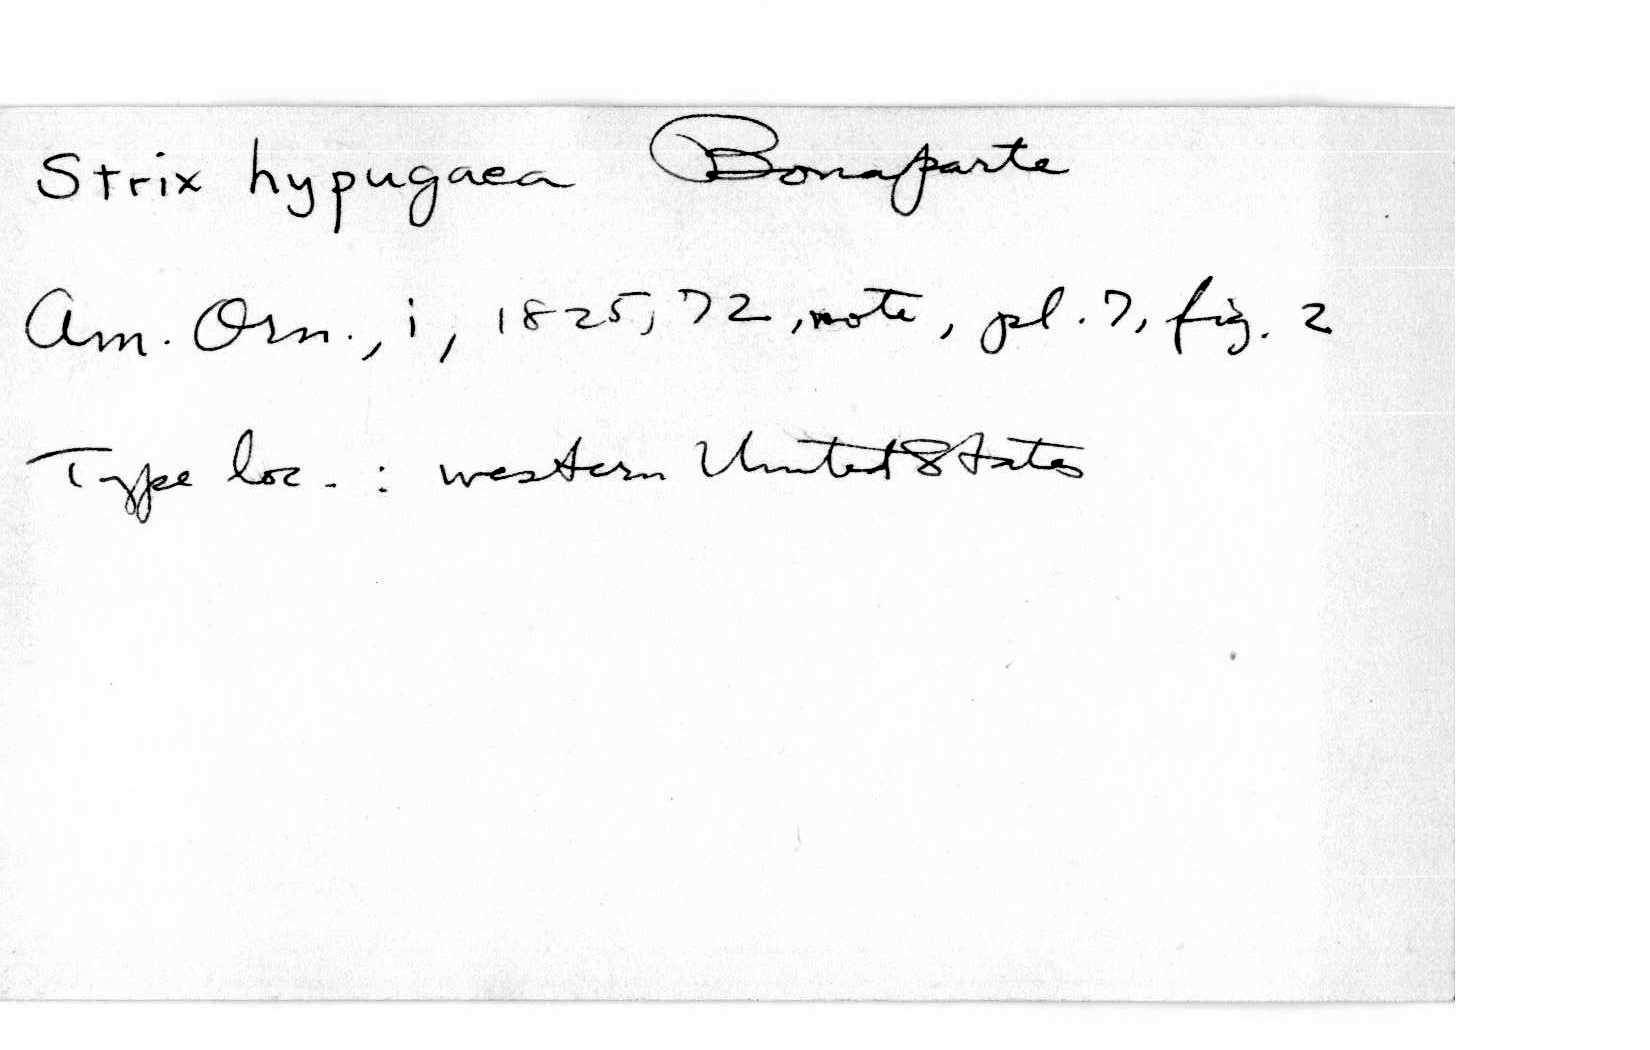 Strix hypugaea Bonaparte
Am. Orn., i, 1825, 72, note, pl. 7, fig. 2
Type loc. : western United States